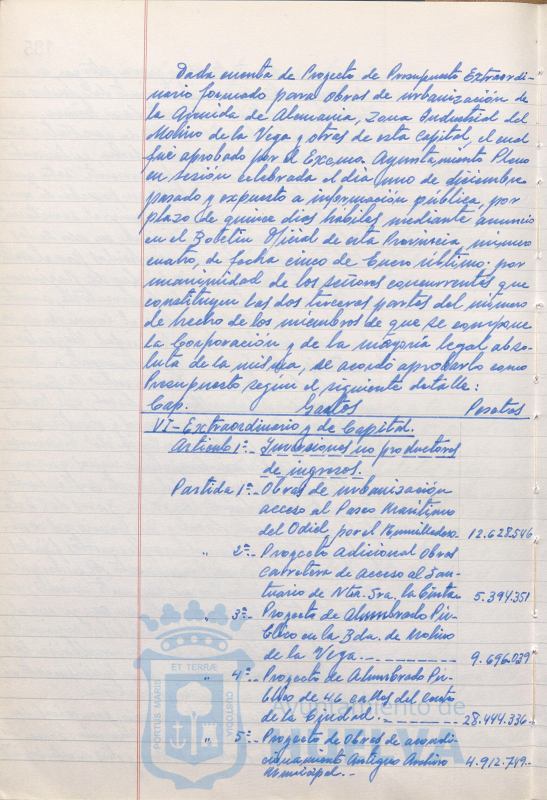 Dada cuenta de Proyecto de Presupuesto Extraordi-
nario formado para obras de urbanización de
la Avenida de Alemania, Zona Industrial del
Molino de la Vega y otras de esta Capital, el cual
fué aprobado por el Excmo. Ayuntamiento Pleno
en sesión celebrada el día uno de diciembre
pasado y expuesto a información pública, por
plazo de quince días hábiles mediante anuncio
en el Boletín Oficial de esta Provincia, número
cuatro, de fecha cinco de Enero último: por
unanimidad de los señores concurrentes que
constituyen las dos terceras partes del número
de hecho de los miembros de que se compone
la Corporación y de la mayoría legal abso-
luta de la misma, se acordó aprobarlo como
Presupuesto según el siguiente detalle:
Cap. Gastos Pesetas
VI- Extraordinario y de Capital.
Artículo 1º- Inversiones no productoras
de ingresos.
Partida 1ª- Obras de urbanización
acceso al Paseo Marítimo
del Odiel, por el Humilladero 12.628.546
" 2ª- Proyecto adicional Obras
carretera de acceso al San-
tuario de Ntra. Sra. la Cinta 5.394.351
" 3ª- Proyecto de Alumbrado Pú-
blico en la Bda. de Molino
de la Vega. 9.696.039
" 4ª- Proyecto de Alumbrado Pú-
blico de 46 calles del Centro
de la Ciudad. 28.444.336
" 5ª- Proyecto de Obras de acondi-
cionamiento Antiguo Archivo 4.912.749
Municipal.
PORTUS MARIS ET TERRÆ CUSTODIA
Ayuntamiento de
HUELVA